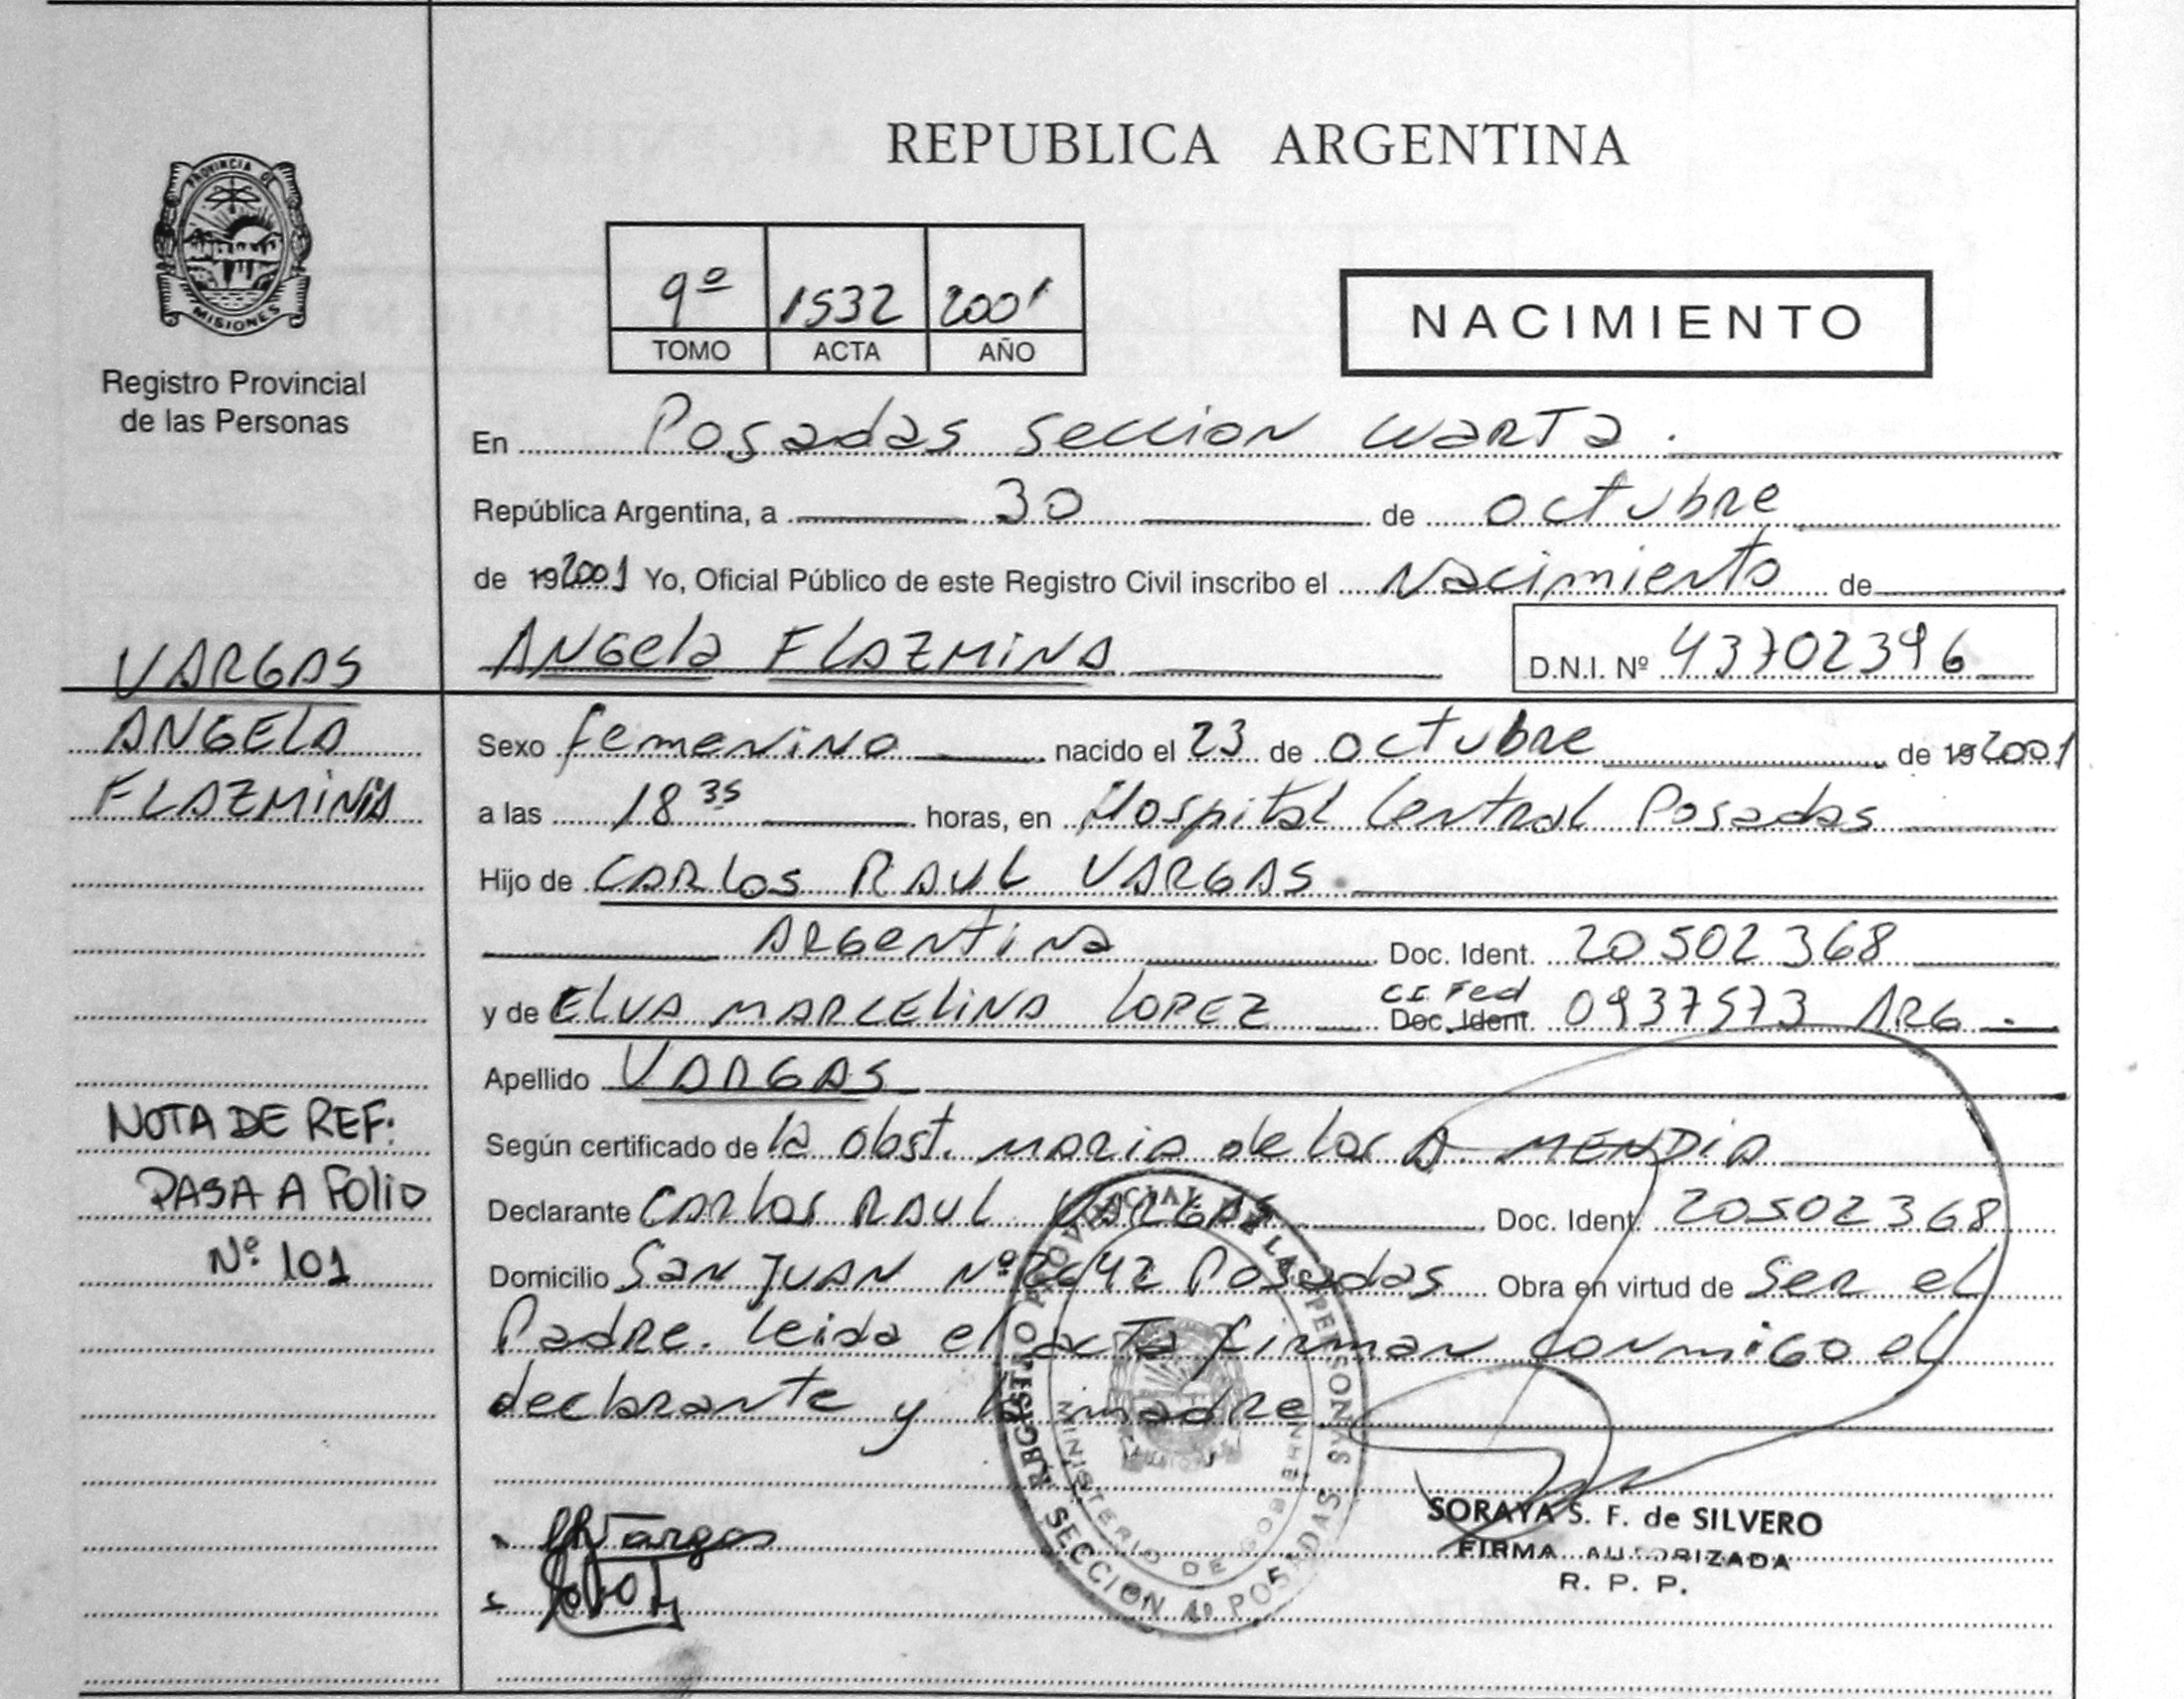 PROVINCIA DE
MISIONES
Registro Provincial
de las Personas
REPUBLICA ARGENTINA
9º 1532 2001
TOMO ACTA AÑO
NACIMIENTO
En Posadas seccion cuarta.
República Argentina, a 30 de octubre
de 19 2001 Yo, Oficial Público de este Registro Civil inscribo el Nacimiento de
ANGela FLAZMINA D.N.I. Nº 43702396
VARGAS
ANGELA
FLAZMINIA
Sexo femenino nacido el 23 de octubre de 19 2001
a las 18 35 horas, en Hospital Central Posadas
Hijo de CARLos RAUL VARGAS.
ARGentina Doc. Ident. 20502368
y de ELVA MARCELINA LOPEZ C.I. Fed Doc. Ident. 0937573 ARG.
Apellido VARGAS
Según certificado de la obst. maria de los A. MENDIA
Declarante CARLos RAUL VARGAS Doc. Ident. 20502368
Domicilio SAN JUAN Nº 2642 Posadas Obra en virtud de Ser el
Padre. leida el acta firman conmigo el
declarante y la madre
NOTA DE REF:
PASA A FOLIO
Nº 101
REGISTRO PROVINCIAL DE LAS PERSONAS
MINISTERIO DE GOBIERNO
SECCION 4º POSADAS
Vargas
SORAYA S. F. de SILVERO
FIRMA AUTORIZADA
R. P. P.